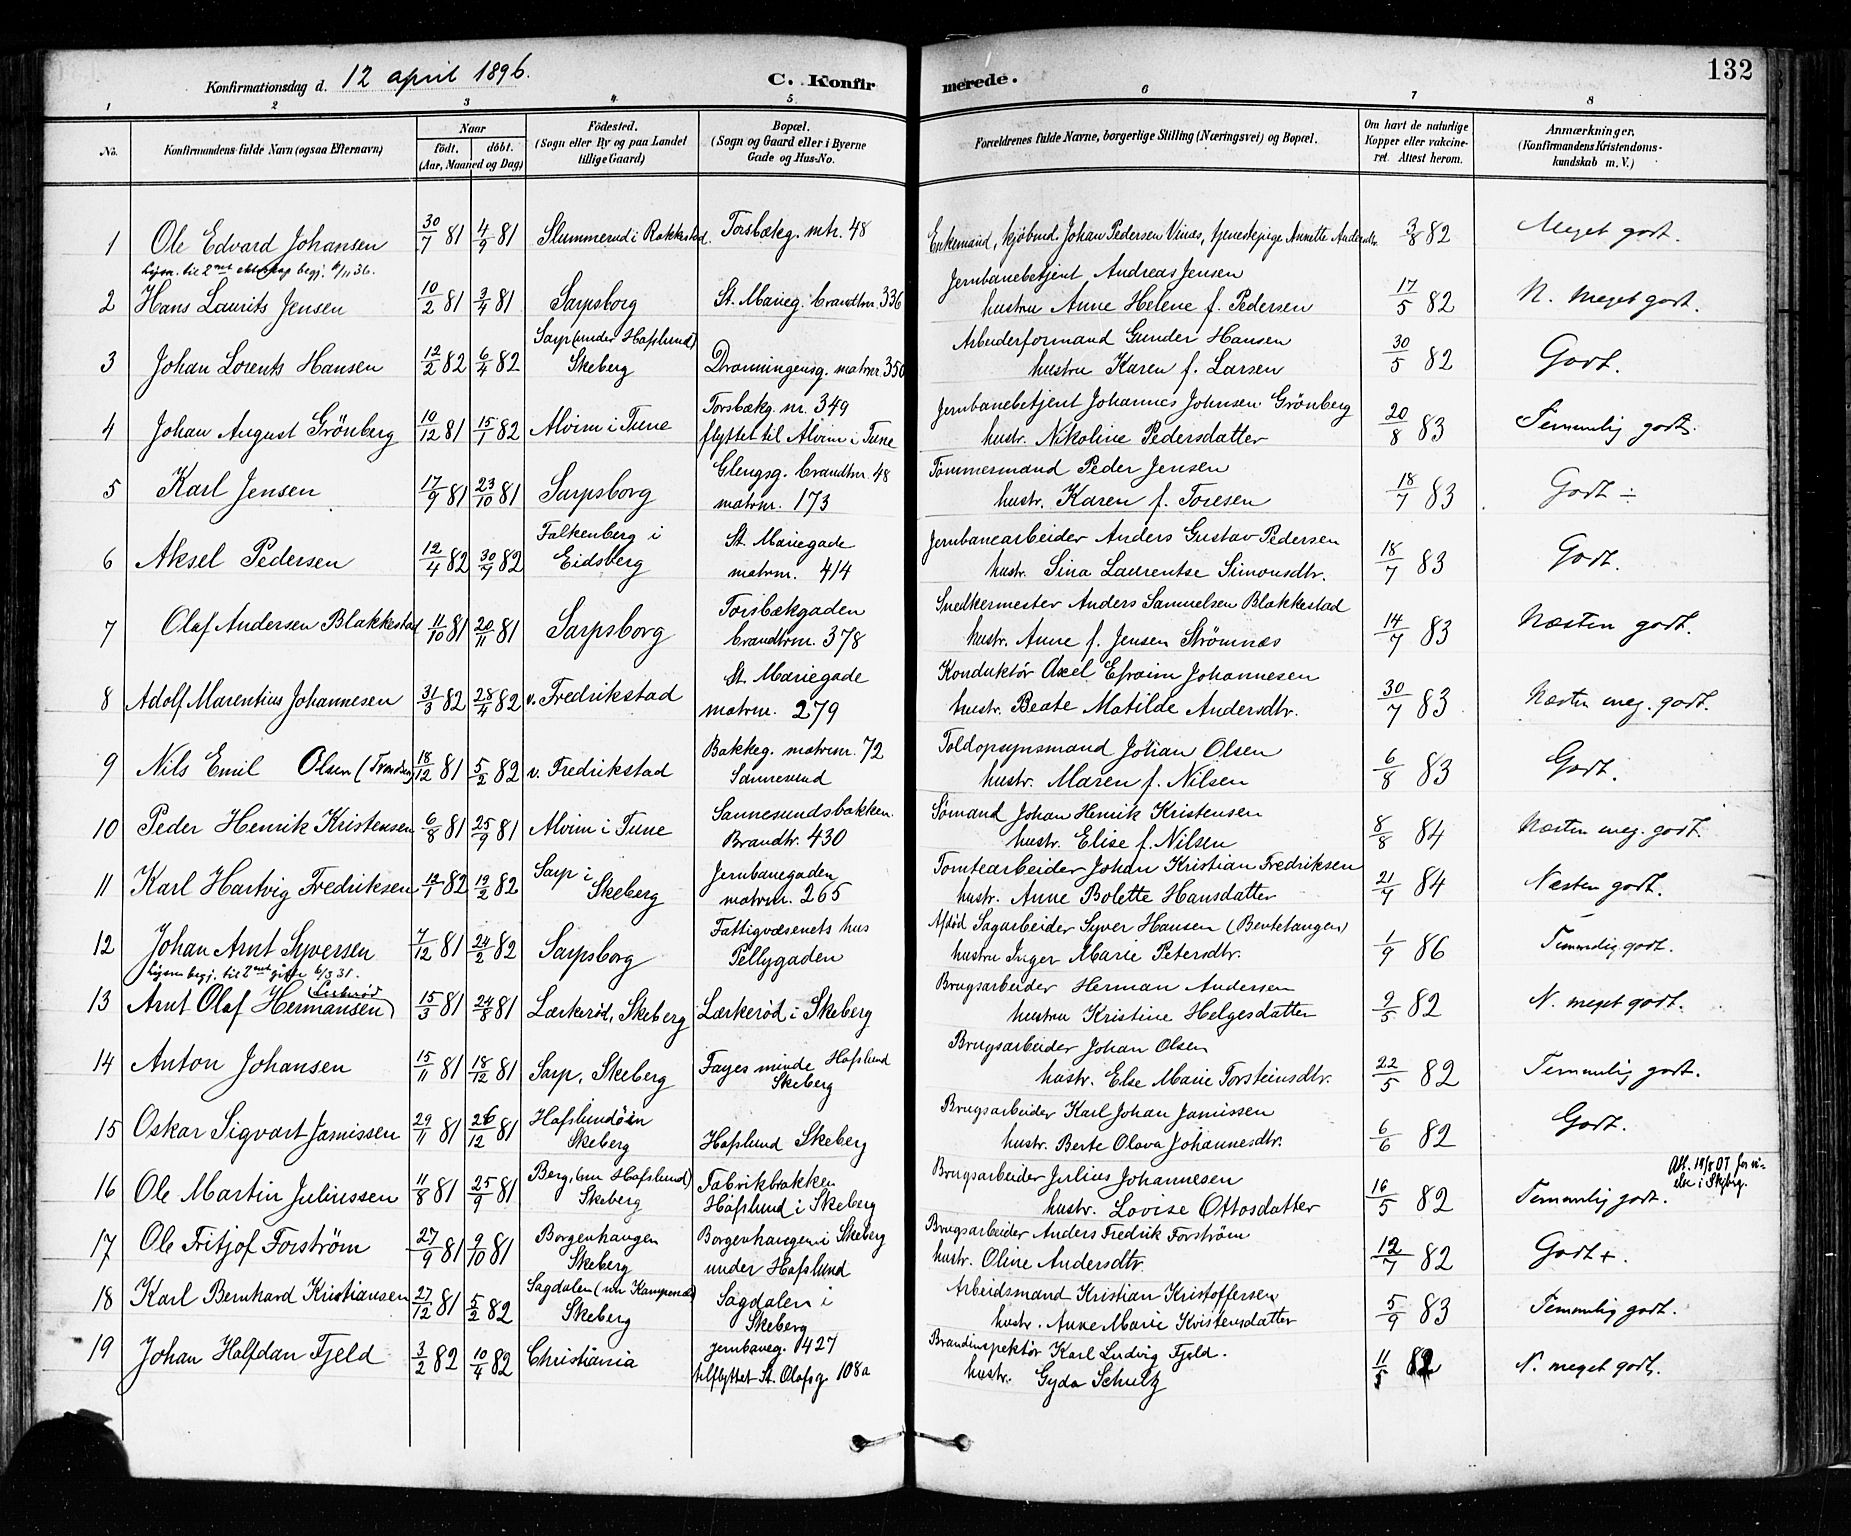 Konfirmationsdag d. 12 april 1896.
C. Konfirmerede.
132
1 2 3 4 5 6 7 8
No. Konfirmandens fulde Navn (ogsaa Efternavn) Naar født. døbt. (Aar, Maaned og Dag) Fødested. (Sogn eller By og paa Landet tillige Gaard) Bopæl. (Sogn og Gaard eller i Byerne Gade og Hus-No. Forældrenes fulde Navne, borgerlige Stilling (Næringsvei) og Bopæl. Om havt de naturlige Kopper eller vakcineret. Attest herom. Anmærkninger. (Konfirmandens Kristendomskundskab m. V.)
1 Ole Edvard Johansen 30/7 81 4/9 81 Slummerud i Rakkestad. Torsbækg. mtr. 48 Enkemand, kjøbmd. Johan Pedersen Vinæs, tjenestepige Annette Andersdtr. 3/8 82 Meget godt.
Lysn. til 2net ekteskap begj. 6/11 36.
2 Hans Laurits Jensen 10/2 81 3/4 81 Sarpsborg St. Marieg. brandtnr. 336 Jernbanebetjent Andreas Jensen hustru Anne Helene f. Pedersen 17/5 82 N. meget godt.
3 Johan Lorents Hansen 12/2 82 6/4 82 Sarp (under Hafslund) Skeberg Dronningensg. matrnr. 350 Arbeiderformand Gunder Hansen hustru Karen f. Larsen 30/5 82 Godt.
4 Johan August Grönberg 10/12 81 15/1 82 Alvim i Tune Torsbækg. nr. 349 flyttet til Alvim i Tune Jernbanebetjent Johannes Johnsen Grönberg hustr. Nikoline Pedersdatter 20/8 83 Temmelig godt.
5 Karl Jensen 17/9 81 23/10 81 Sarpsborg Glengsg. brandtnr. 48 matrnr. 173 Tømmermand Peder Jensen hustr. Karen f. Toresen 18/7 83 Godt ÷
6 Aksel Pedersen 12/4 82 30/7 82 Falkenberg i Eidsberg St. Mariegade matrnr. 414 Jernbanearbeider Anders Gustav Pedersen hustr. Sina Laurentse Simonsdtr. 18/7 83 Godt.
7 Olaf Andersen Blakkestad 11/10 81 20/11 81 Sarpsborg Torsbækgaden brandtnr. 378 Snedkermester Anders Samuelsen Blakkestad hustr. Anne f. Jensen Strømnæs 14/7 83 Næsten godt.
8 Adolf Marentius Johannesen 31/3 82 28/4 82 v. Fredrikstad St. Mariegade matrnr. 279 Konduktör Axel Efraim Johannesen hustr. Beate Matilde Andersdtr. 30/7 83 Næsten meg. godt.
9 Nils Emil Olsen 18/12 81 5/2 82 v. Fredrikstad Bakkeg. matrnr. 72 Sannesund Toldopsynsmand Johan Olsen hustr. Maren f. Nilsen 6/8 83 Godt.
10 Peder Henrik Kristensen 6/8 81 25/9 81 Alvim i Tune Sannesundsbakken Brandtr. 430 Sømand Johan Henrik Kristensen hustr. Elise f. Nilsen 8/8 84 Næsten meg. godt.
11 Karl Hartvig Fredriksen 12/1 82 12/2 82 Sarp i Skeberg Jernbanegaden matrnr. 265 Tomtearbeider Johan Kristian Fredriksen hustr. Anne Bolette Hansdatter 21/7 84 Næsten godt.
12 Johan Arnt Syversen 7/12 81 24/2 82 Sarpsborg Fattigvæsenets hus Pellygaden Afdød Sagarbeider Syver Hansen (Bentetangen) hustru Inger Marie Petersdtr. 1/9 86 Temmelig godt.
Lysn begj. til 2net gifte 6/3 31.
13 Arnt Olaf Hermansen (Lerkerød) 15/3 81 24/8 81 Lærkerød, Skeberg Lærkerød i Skeberg Brugsarbeider Herman Andersen hustru Kristine Helgesdatter 2/5 82 N. meget godt.
14 Anton Johansen 15/11 81 18/12 81 Sarp, Skeberg Fayes minde Hafslund Skeberg Brugsarbeider Johan Olsen hustr. Else Marie Torsteinsdtr. 22/5 82 Temmelig godt.
15 Oskar Sigvart Jamissen 29/11 81 26/12 81 Hafslundöen Skeberg Hafslund Skeberg Brugsarbeider Karl Johan Jamissen hustr. Berte Olava Johannesdtr. 6/6 82 Godt.
16 Ole Martin Juliussen 11/8 81 25/9 81 Berg, (un Hafslund) Skeberg Fabrikbakken Hafslund i Skeberg Brugsarbeider Julius Johannesen hustr. Lovise Ottosdatter 16/5 82 Temmelig godt.
17 Ole Fritjof Forström 27/9 81 9/10 81 Borgenhaugen Skeberg Borgenhaugen i Skeberg under Hafslund Brugsarbeider Anders Fredrik Forström hustr. Oline Andersdtr. 12/7 82 Godt +.
18 Karl Bernhard Kristiansen 27/12 81 5/2 82 Sagdalen Skeberg Sagdalen i Skeberg Arbeidsmand Kristian Kristoffersen hustr. Anne Marie Kristensdatter 5/9 83 Temmelig godt.
19 Johan Halfdan Fjeld 3/2 82 10/4 82 Christiania Jernbaneg. 427 tilflyttet St. Olafsg 108a Brandinspektör Karl Ludvig Fjeld. hustr. Gyda Schultz 11/5 82 N. meget godt.